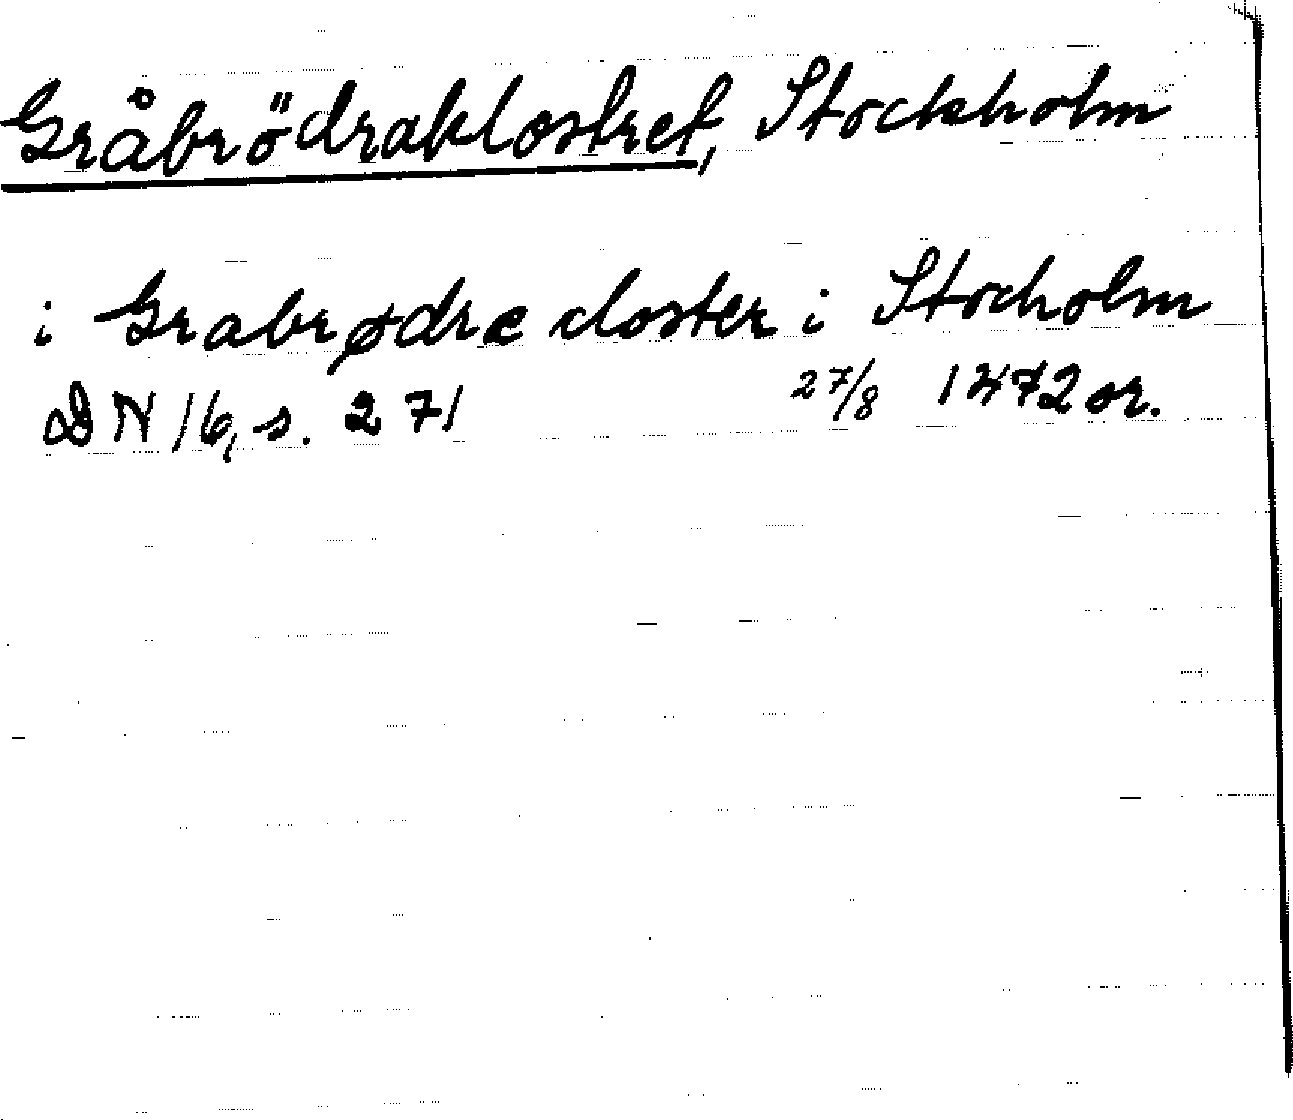 Gråbrödraklostret, Stockholm
i Grabrødre closter i Stocholm
DN 16, s. 271 27/8 1472 or.